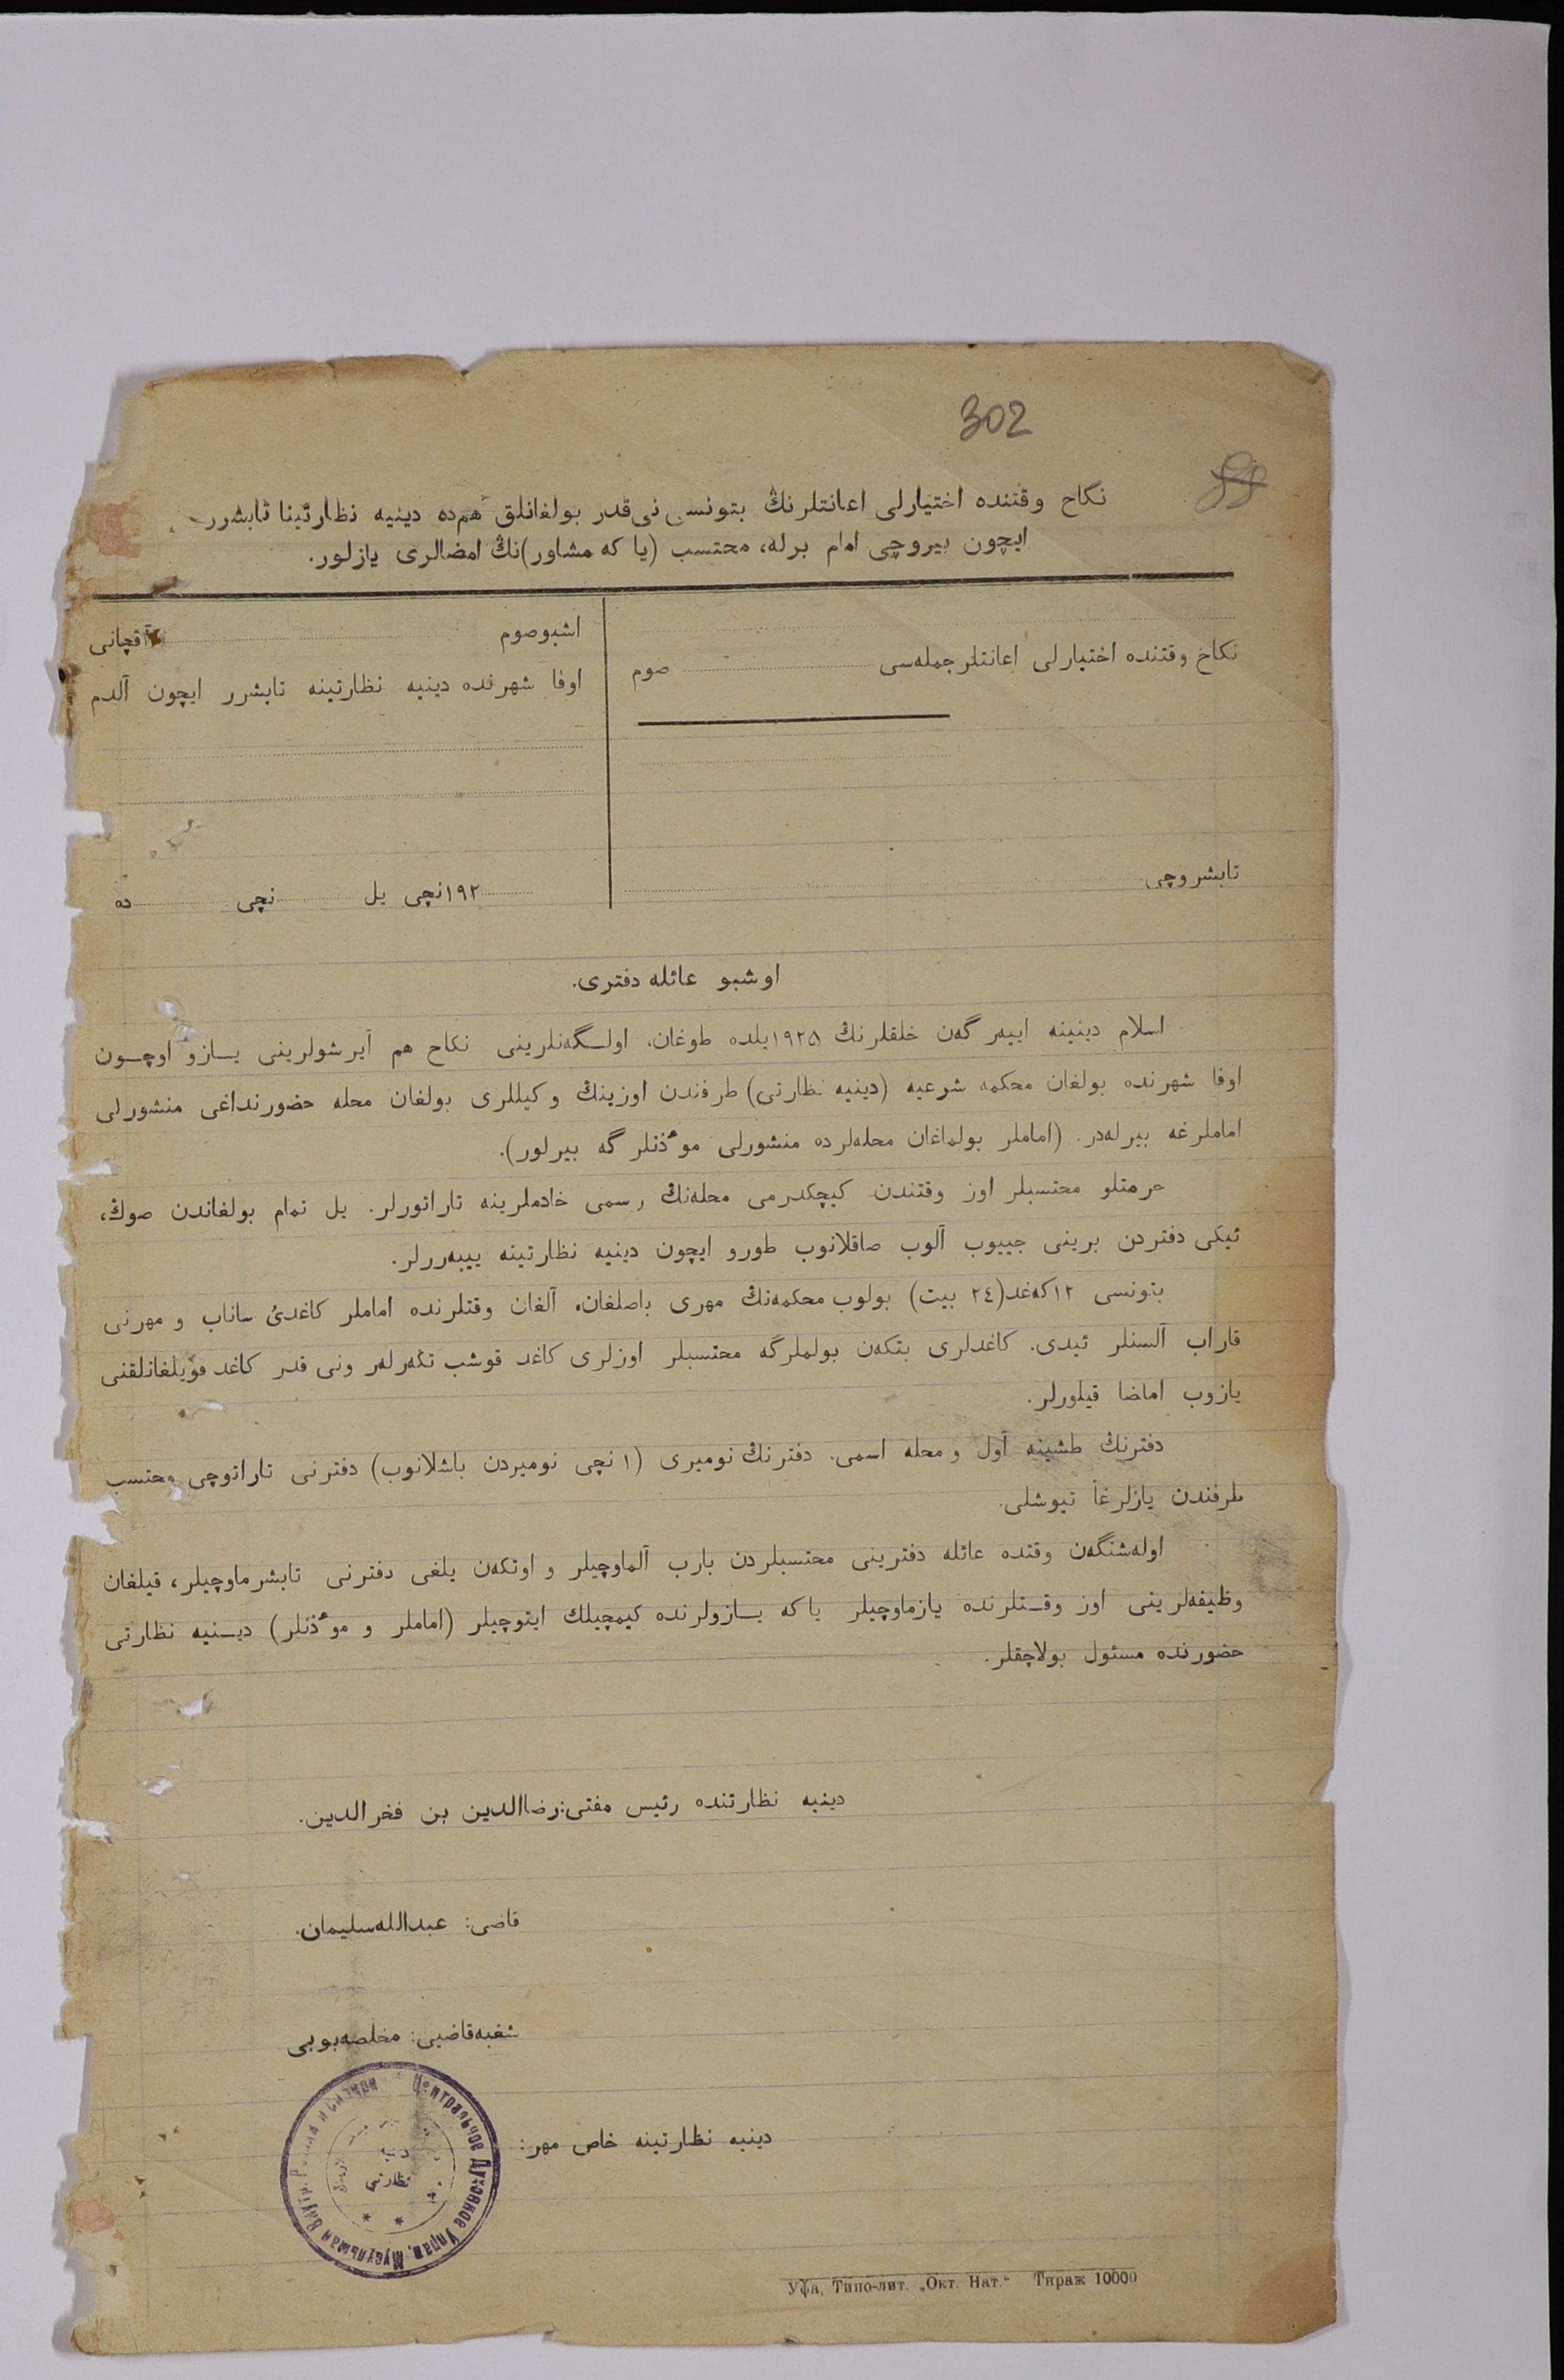 302
نكاح وقتنده اختيارلى اعانتلرنڭ بتونسى نى قدر بولغانلق هم ده دينيه نظارتينا تابشرر
ايچون بيروچى امام برله، محتسب (يا كه مشاور)نڭ امضالرى يازلور.
نكاح وقتنده اختيارلى اعانتلر جمله‌سى صوم
تابشروچى
اشبو صوم آقچانى
اوفا شهرنده دينيه نظارتينه تابشرر ايچون آلدم
١٩٢ نچى يل نچى ده
اوشبو عائله دفترى.
اسلام دينينه ايپه‌رگه‌ن خلقلرنڭ ١٩٢٥ يلده طوغان، اولـگه‌نلرينى نكاح هم آيرشولرينى يـازو اوچـون
اوفا شهرنده بولغان محكمه شرعيه (دينيه نظارتى) طرفندن اوزينڭ وكيللرى بولغان محله حضورنداغى منشورلى
اماملرغه بيرله‌در. (اماملر بولماغان محله‌لرده منشورلى موٴذنلرگه بيرلور).
حرمتلو محتسبلر اوز وقتندن كيچكدرمى محله‌نڭ رسمى خادملرينه تاراتورلر. يل تمام بولغاندن صوڭ،
ئيكى دفتردن برينى جييوب آلوب صاقلانوب طورو ايچون دينيه نظارتينه ييبه‌ررلر.
بتونسى ١٢ كه‌غد(٢٤ بيت) بولوب محكمه‌نڭ مهرى باصلغان. آلغان وقتلرنده اماملر كاغدئ ساناب و مهرنى
قاراب آلسنلر ئيدى. كاغدلرى بتكه‌ن بولملرگه محتسبلر اوزلرى كاغد قوشب تكه‌رله‌ر ونى قدر كاغد قويلغانلقنى
يازوب اماضا قيلورلر.
دفترنڭ طشينه آول و محله اسمى. دفترنڭ نوميرى (١ نچى نوميردن باشلانوب) دفترنى تاراتوچى محتسب
طرفندن يازلرغا تيوشلى.
اوله‌شنگه‌ن وقتده عائله دفترينى محتسبلردن بارب آلماوچيلر و اوتكه‌ن يلغى دفترنى تابشرماوچيلر، قيلغان
وظيفه‌لرينى اوز وقـتلرنده يازماوچيلر ياكه يـازولرنده كيمچيلك ايتوچيلر (اماملر و موٴذنلر) ديـنيه نظارتى
حضورنده مسئول بولاچقلر.
دينيه نظارتنده رئيس مفتى: رضاالدين بن فخرالدين.
قاضى: عبدالله سليمان.
شغبه قاضيى: مخلصه بوبى
دينيه نظارتينه خاص مهر:
Центральное Духовное Управ. Мусульман Внутр.
نظارتى
Уфа, Типо-лит. „Окт. Нат.“ Тираж 10000